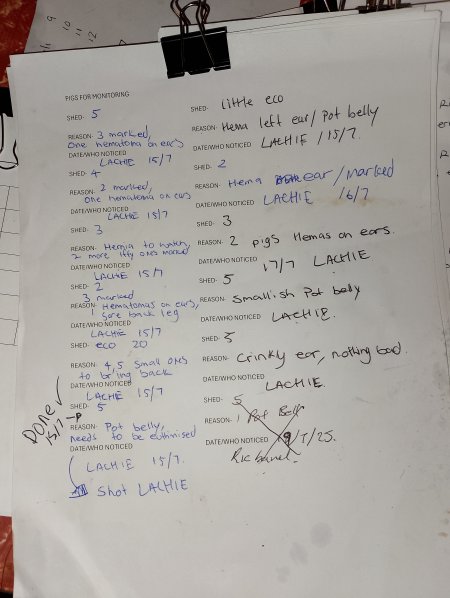 9
10
11
12
PIGS FOR MONITORING
SHED- 5
REASON- 3 marked,
one hematoma on ears
DATE/WHO NOTICED
LACHIE 15/7
SHED- 4
REASON- 2 marked,
one hematoma on ears
DATE/WHO NOTICED
LACHIE 15/7
SHED- 3
REASON- Hernia to
2 more iffy ones marked
DATE/WHO NOTICED
LACHIE 15/7
SHED- 2
3 marked
REASON- 1 Hematomas on ears,
sore back leg
DATE/WHO NOTICED
LACHIE 15/7
SHED- eco 20
REASON- 4,5 small ones
to bring back
DATE/WHO NOTICED
LACHIE 15/7
SHED- 5
REASON- Pot belly,
needs to be euthinised
DATE/WHO NOTICED
LACHIE 15/7.
Shot LACHIE
Done
15/7
SHED- Little eco
REASON- Hema left ear/ Pot belly
DATE/WHO NOTICED LACHIE /15/7.
SHED- 2
REASON- Hema ear/marked
DATE/WHO NOTICED LACHIE 16/7
SHED- 3
REASON- 2 pigs Hemas on ears.
DATE/WHO NOTICED 17/7 LACHIE
SHED- 5
REASON- Smallish Pot belly
DATE/WHO NOTICED LACHIE.
SHED- 5
REASON- Crinky ear, nothing bad.
DATE/WHO NOTICED
LACHIE.
SHED- 5
REASON- 1 Pot Belly
DATE/WHO NOTICED 9/7/25.